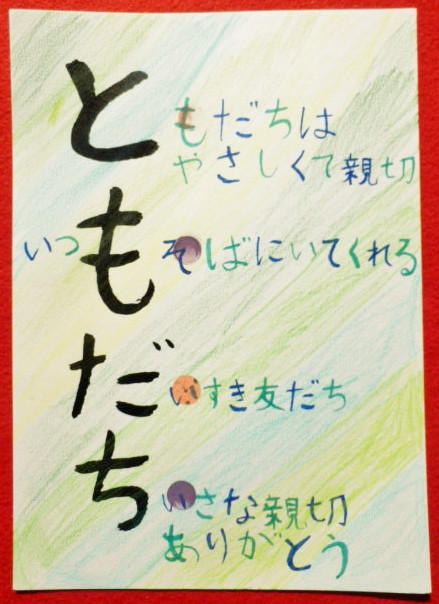 ともだちは
やさしくて親切
いつもそばにいてくれる
だいすき友だち
ちいさな親切
ありがとう